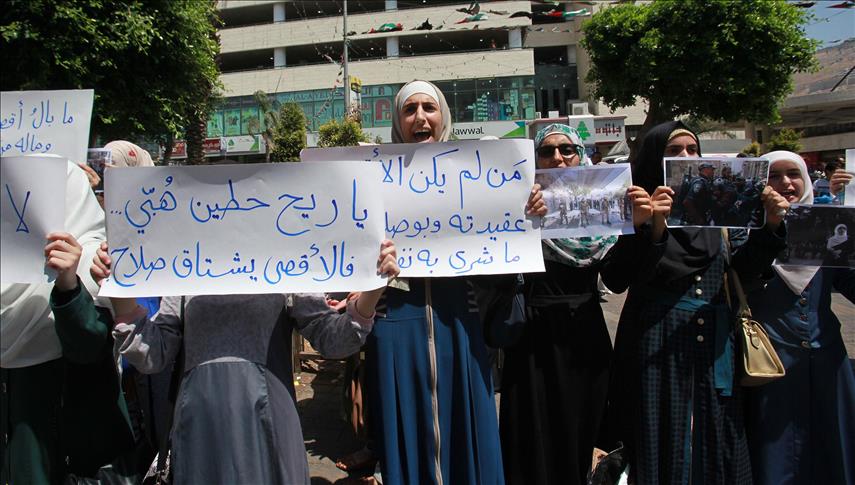 ما بالُ
وماله
لا
يا ريح حطين هُبّي...
فالأقصى يشتاق صلاح
مَن لم يكن
عقيدته وبوصل
ما شرى به
Jawwal